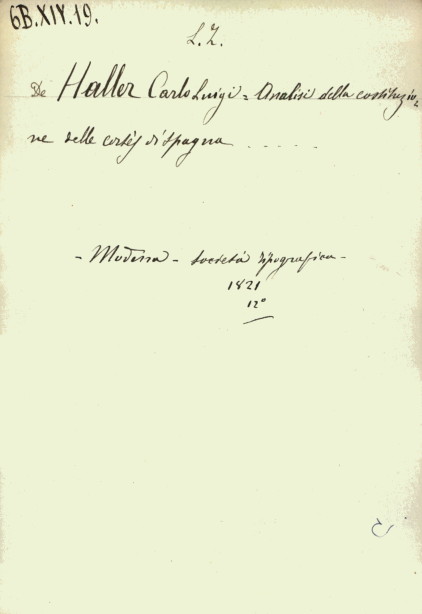 6B.XIV.19.
L.Z.
De Haller Carlo Luigi = Analisi della costituzio=
ne delle cortes di Spagna . . . . .
- Modena - Società Tipografica -
1821
12°